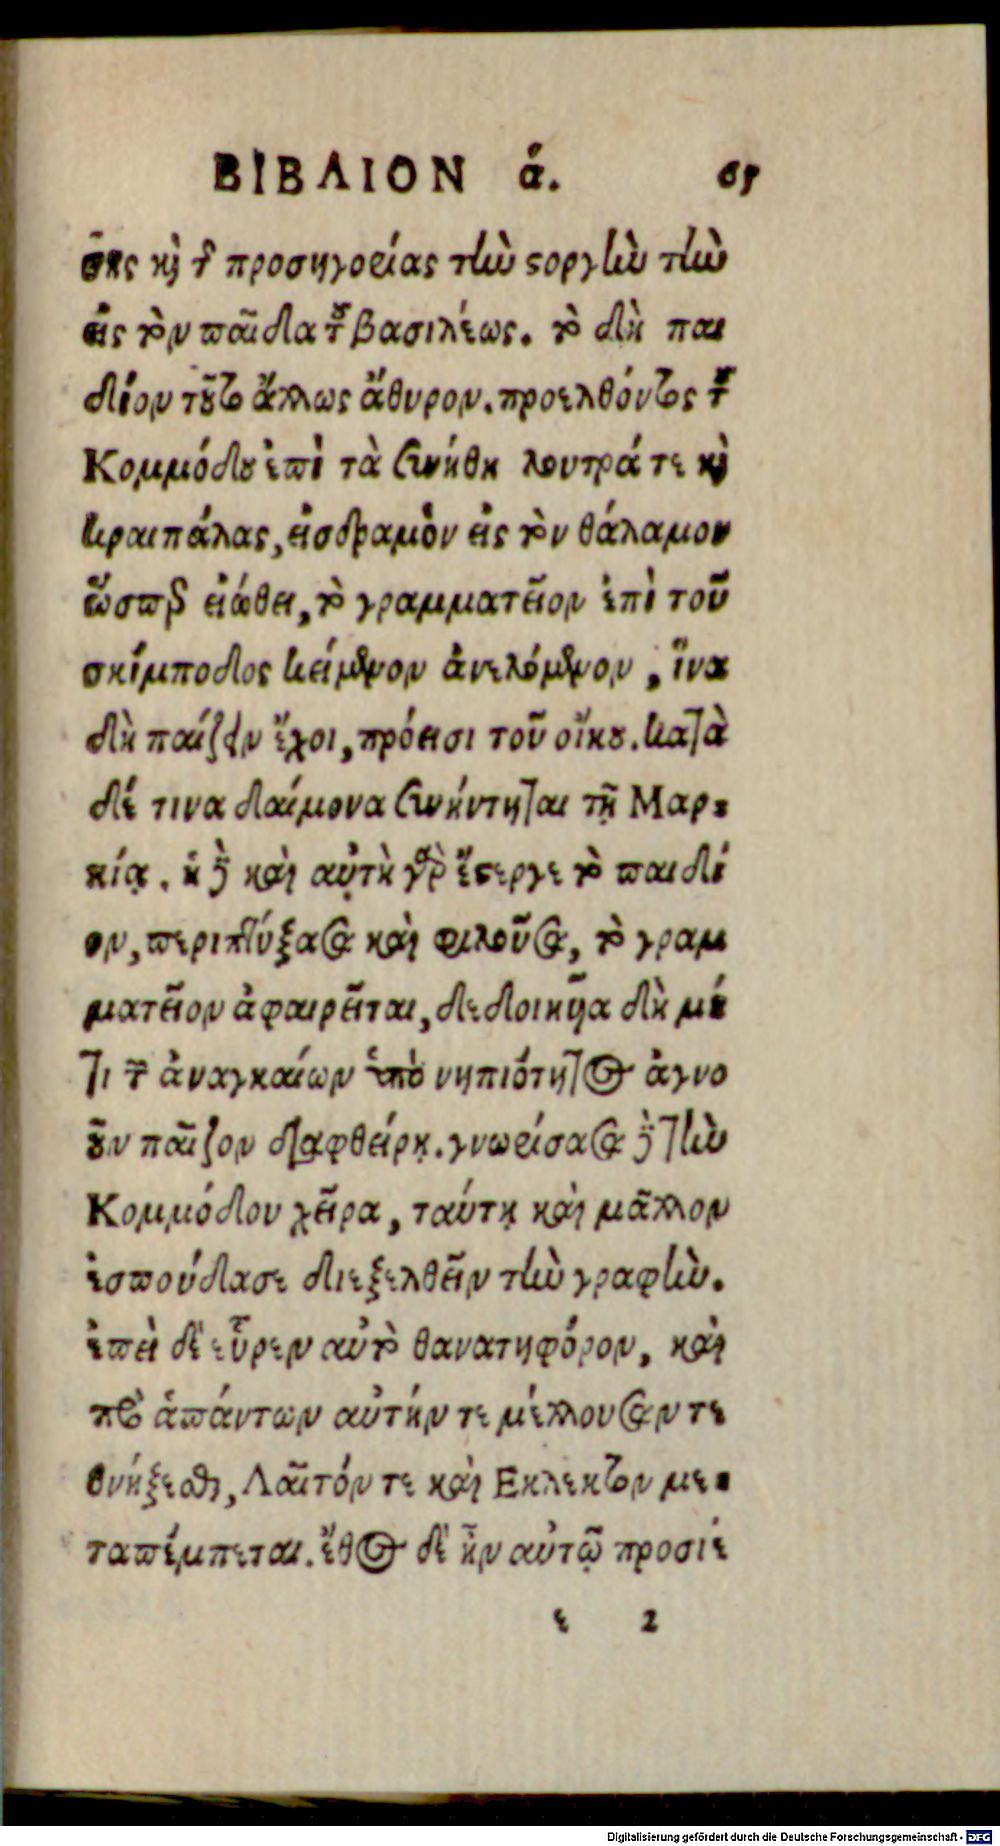 ΒΙΒΛΙΟΝ ά. 65
σης κὶ τ̑ προσηγορίας τὴν στοργὴν τὴν
εἰς τὸν παῖδα τ̑ βασιλέως. τὸ δὴ παι
δίον τοῦτο ἄλλως ἄθυρον. προελθόντος τ̑
Κομμόδου ἐπὶ τὰ συνήθη λουτρά τε κὶ
κραιπάλας, εἰσδραμὸν εἰς τὸν θάλαμον
ὥσπερ εἰώθει, τὸ γραμματεῖον ἐπὶ τοῦ
σκίμποδος κείμενον ἀνελόμενον, ἵνα
δὴ παίζειν ἔχοι, πρόεισι τοῦ οἴκου. κατὰ
δέ τινα δαίμονα συνήντηται τῇ Μαρ⸗
κίᾳ. ἡ δὲ καὶ αὐτὴ γὰρ ἔστεργε τὸ παιδί
ον, περιπτύξασα καὶ φιλοῦσα, τὸ γραμ
ματεῖον ἀφαιρεῖται, δεδοικῆα δὴ μή
τι τ̑ ἀναγκαίων ὑπὸ νηπιότητος ἀγνο
οῦν παῖζον διαφθείρῃ. γνωρίσασα δὲ τὴν
Κομμόδου χεῖρα, ταύτῃ καὶ μᾶλλον
ἐσπούδασε διεξελθεῖν τὴν γραφὴν.
ἐπεὶ δὲ εὗρεν αὐτὸ θανατηφόρον, καὶ
πρὸ ἁπάντων αὐτήν τε μέλλουσάν τε
θνήξεσθαι, Λαῖτόν τε καὶ Εκλεκτον με⸗
ταπέμπεται. ἔθος δὲ ἦν αὐτῷ προσιέ
ε 2
Digitalisierung gefördert durch die Deutsche Forschungsgemeinschaft - DFG